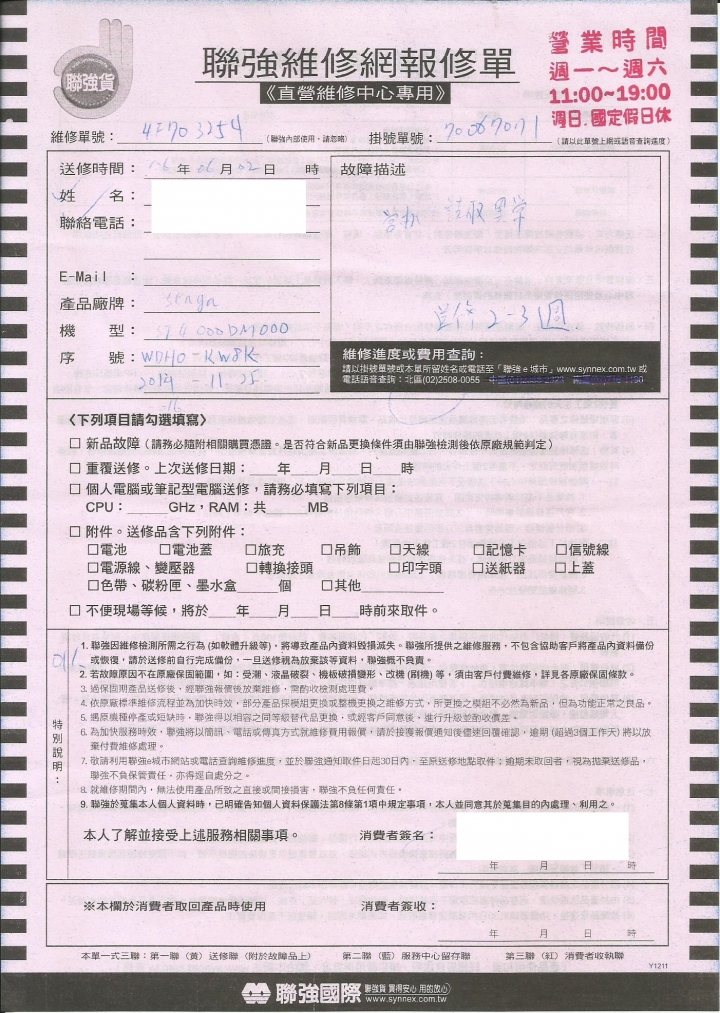 聯強貨
聯強維修網報修單
《直營維修中心專用》
營業時間
週一～週六
11:00~19:00
週日.國定假日休
維修單號：4F703254（聯強內部使用，請忽略）
掛號單號：70067071（請以此單號上網或語音查詢進度）
送修時間：106年06月02日 時
姓 名：
聯絡電話：
E-Mail ：
產品廠牌：
機 型：ST4000DM000
序 號：WDH0-KW8K
2014-11-25
故障描述
讀取異常
2-3週
維修進度或費用查詢：
請以掛號單號或本單所留姓名或電話至「聯強e城市」www.synnex.com.tw 或
電話語音查詢：北區(02)2508-0055
〈下列項目請勾選填寫〉
□ 新品故障（請務必隨附相關購買憑證。是否符合新品更換條件須由聯強檢測後依原廠規範判定）
□ 重覆送修。上次送修日期：＿＿年＿＿月＿＿日＿＿時
□ 個人電腦或筆記型電腦送修，請務必填寫下列項目：
CPU：＿＿＿GHz，RAM：共＿＿＿MB
□ 附件。送修品含下列附件：
□電池 □電池蓋 □旅充 □吊飾 □天線 □記憶卡 □信號線
□電源線、變壓器 □轉換接頭 □印字頭 □送紙器 □上蓋
□色帶、碳粉匣、墨水盒＿＿＿個 □其他＿＿＿＿＿＿
□ 不便現場等候，將於＿＿年＿＿月＿＿日＿＿時前來取件。
特別說明：
1. 聯強因維修檢測所需之行為 (如軟體升級等)，將導致產品內資料毀損滅失。聯強所提供之維修服務，不包含協助客戶將產品內資料備份
或恢復，請於送修前自行完成備份，一旦送修視為放棄該等資料，聯強概不負責。
2. 若故障原因不在原廠保固範圍，如：受潮、液晶破裂、機板破損變形、改機 (刷機) 等，須由客戶付費維修，詳見各原廠保固條款。
3. 過保固期產品送修後，經聯強報價後放棄維修，需酌收檢測處理費。
4. 依原廠標準維修流程並為加快時效，部分產品採模組更換或整機更換之維修方式，所更換之模組不必然為新品，但為功能正常之良品。
5. 遇原機種停產或短缺時，聯強得以相容之同等級替代品更換，或經客戶同意後，進行升級並酌收價差。
6. 為加快服務時效，聯強將以簡訊、電話或傳真方式就維修費用報價，請於接獲報價通知後儘速回覆確認，逾期 (超過3個工作天) 將以放
棄付費維修處理。
7. 敬請利用聯強e城市網站或電話查詢維修進度，並於聯強通知取件日起30日內，至原送修地點取件；逾期未取回者，視為拋棄送修品，
聯強不負保管責任，亦得逕自處分之。
8. 就維修期間內，無法使用產品所致之直接或間接損害，聯強不負任何責任。
9. 聯強於蒐集本人個人資料時，已明確告知個人資料保護法第8條第1項中規定事項，本人並同意其於蒐集目的內處理、利用之。
本人了解並接受上述服務相關事項。 消費者簽名：
年 月 日 時
※本欄於消費者取回產品時使用 消費者簽收：
年 月 日 時
本單一式三聯：第一聯（黃）送修聯（附於故障品上） 第二聯（藍）服務中心留存聯 第三聯（紅）消費者收執聯
Y1211
聯強國際 聯強貨 買得安心 用的放心 www.synnex.com.tw